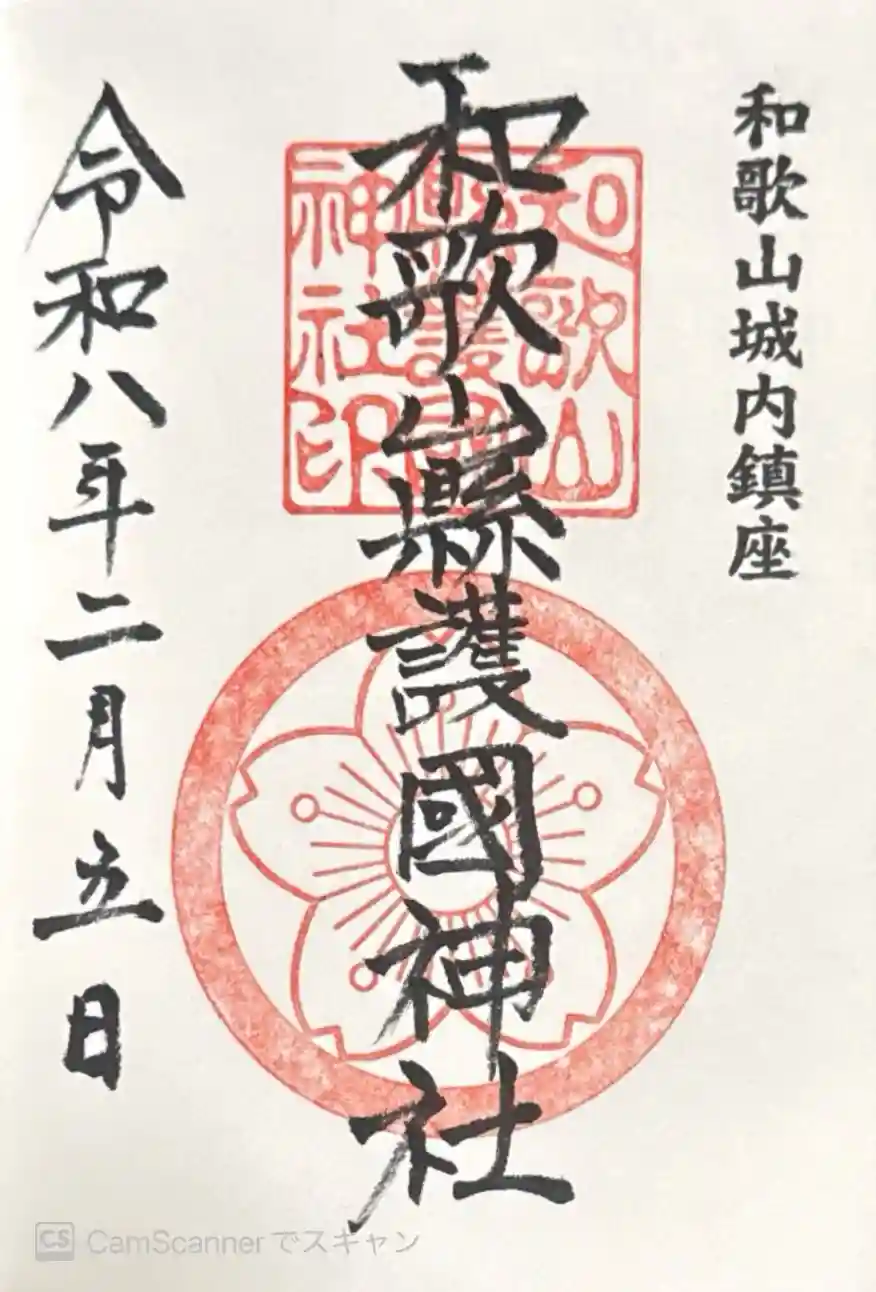 和歌山城内鎮座
和歌山縣護國神社
和歌山
縣護國
神社印
令和八年二月五日
CS CamScannerでスキャン